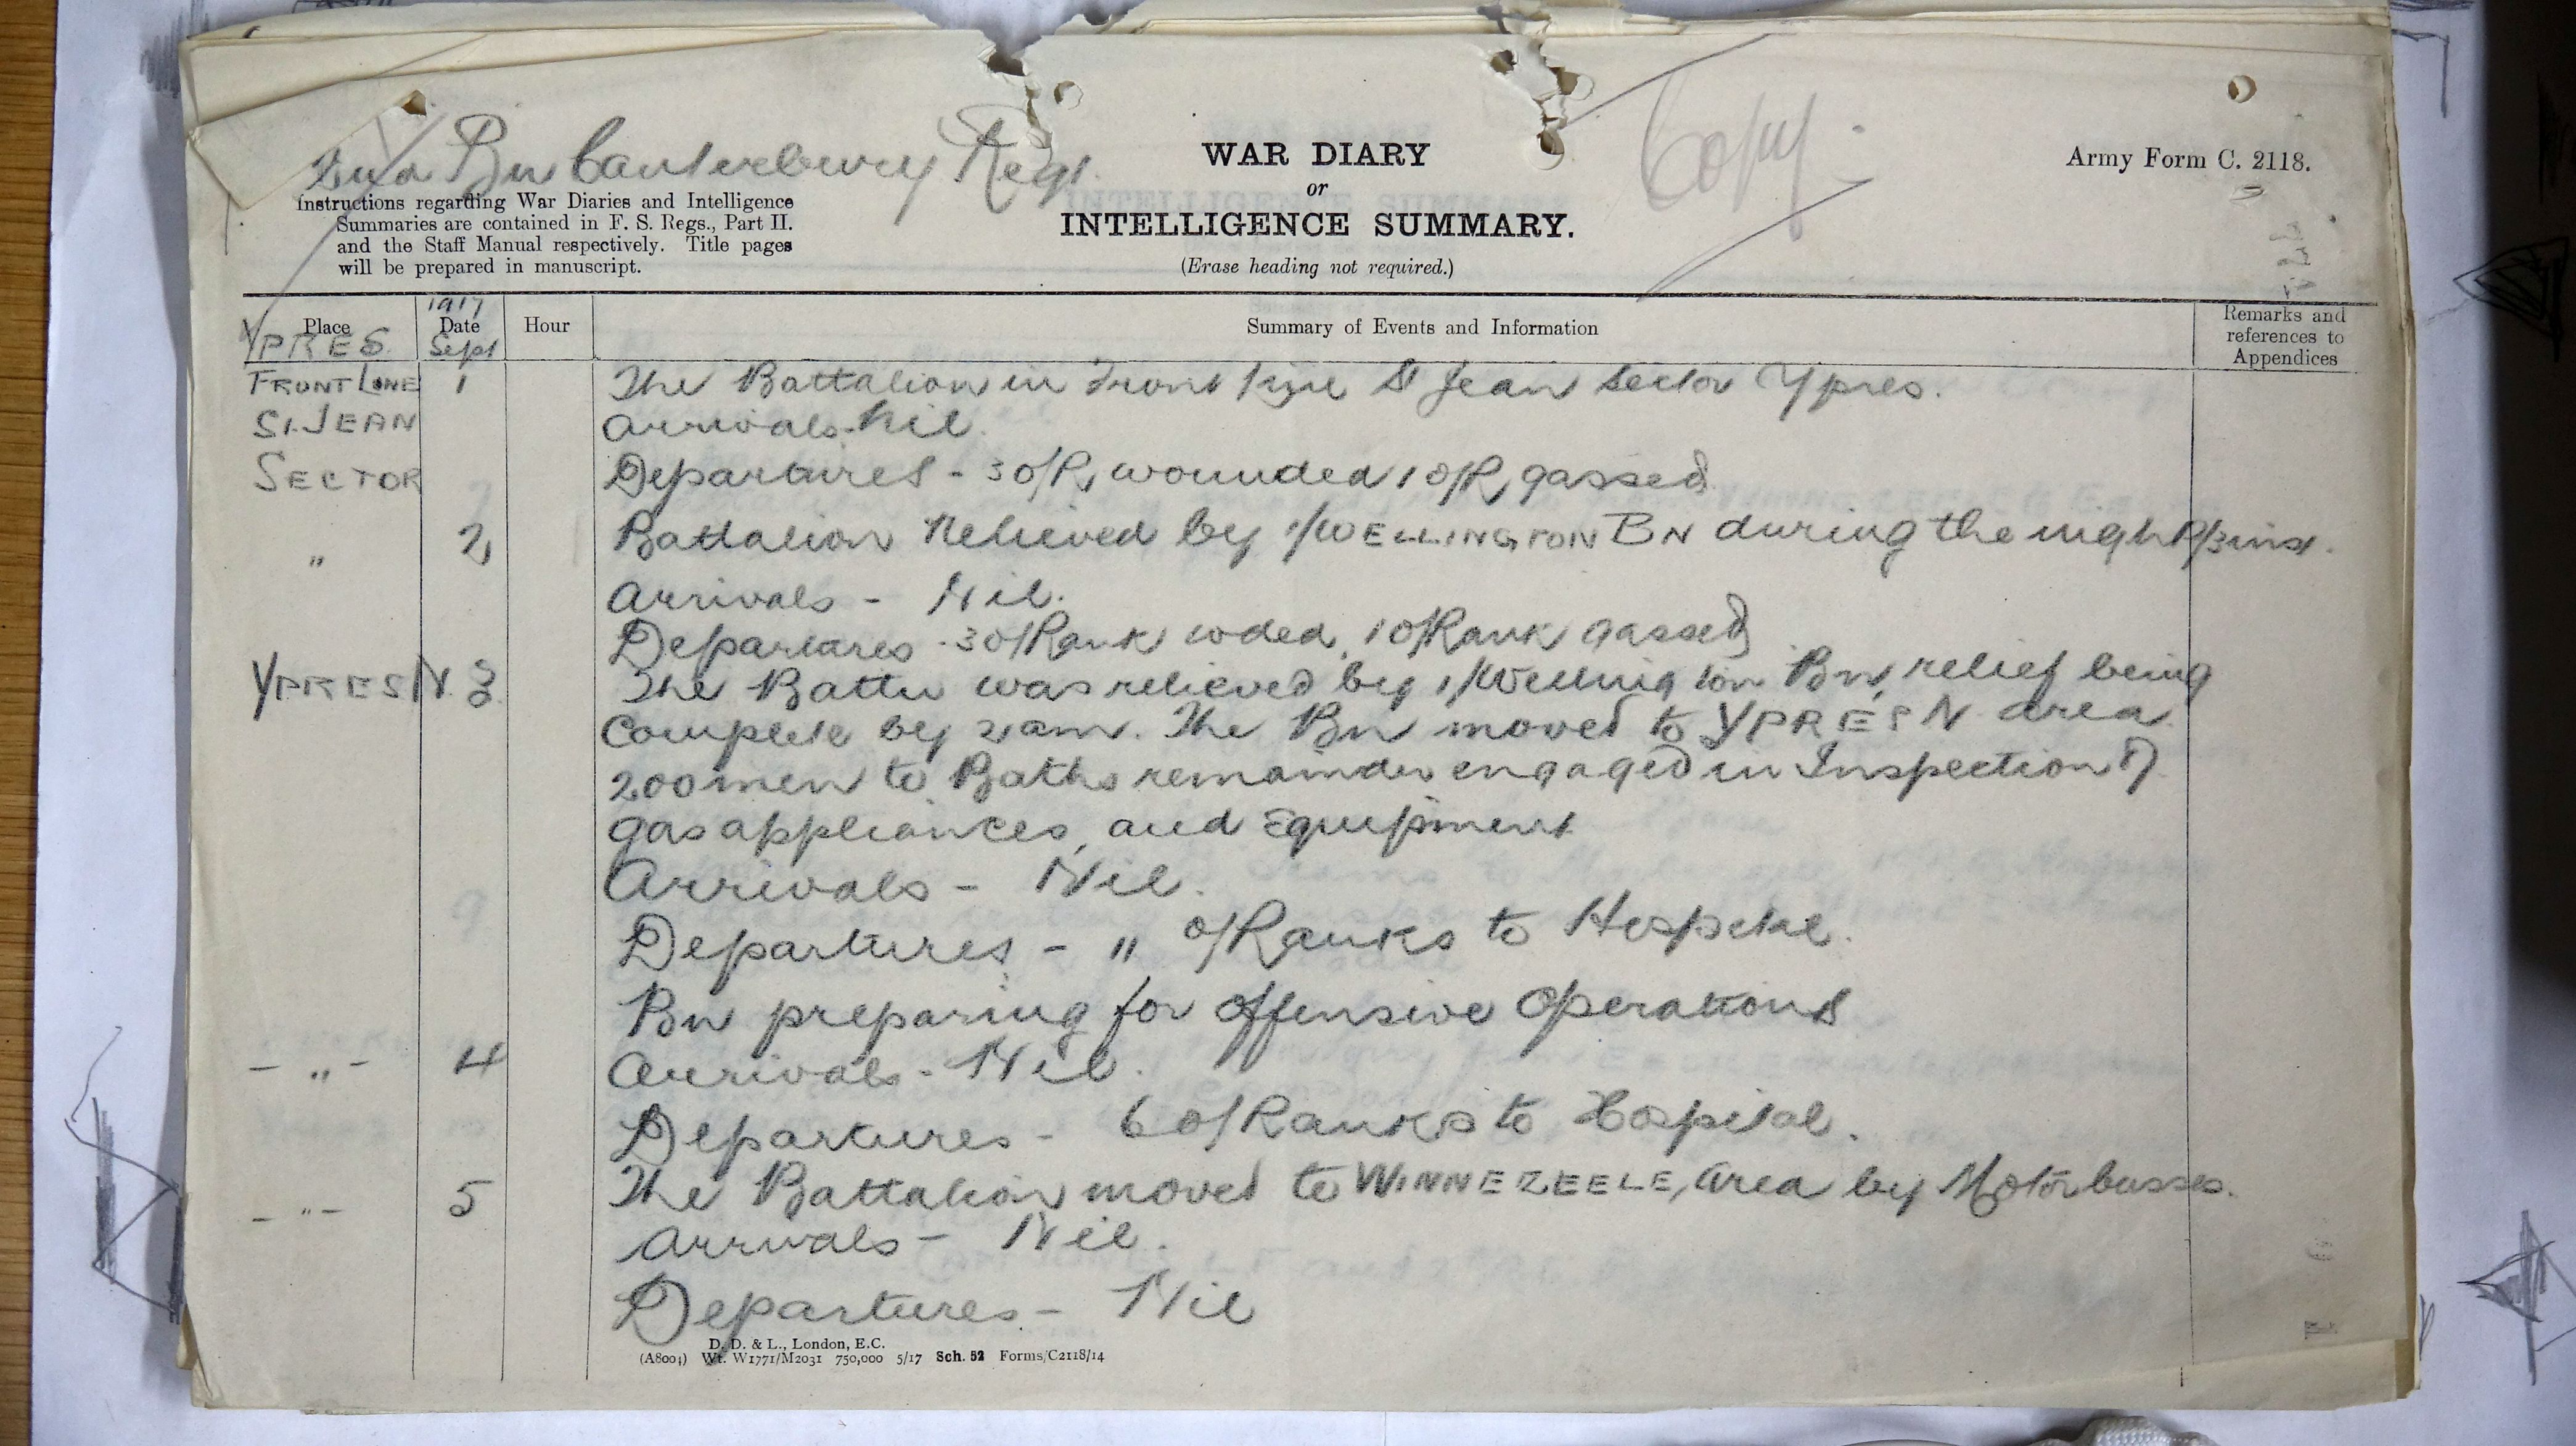 2nd Bn Canterbury Regt.
WAR DIARY
or
INTELLIGENCE SUMMARY.
(Erase heading not required.)
Copy.
Army Form C. 2118.
Instructions regarding War Diaries and Intelligence
Summaries are contained in F. S. Regs., Part II.
and the Staff Manual respectively. Title pages
will be prepared in manuscript.
Place
YPRES
1917
Date
Sept
Hour
Summary of Events and Information
Remarks and
references to
Appendices
FRONT LINE 1 The Battalion in Front Line St Jean Sector Ypres.
ST. JEAN Arrivals - Nil.
SECTOR Departures - 3 O/R, wounded 1 O/R, gassed
" 2 Battalion Relieved by 1/WELLINGTON BN during the night 2/3 inst.
Arrivals - Nil.
Departures - 3 O/Rank wded, 1 O/Rank gassed
YPRES N. 3 The Battn was relieved by 1/Wellington Bn, relief being
Complete by 2 am. The Bn moved to YPRES N area
200 men to Baths remainder engaged in Inspection of
gas appliances, and Equipment
Arrivals - Nil.
Departures - 11 O/Ranks to Hospital.
Bn preparing for Offensive Operations
- " - 4 Arrivals - Nil.
Departures - 6 O/Ranks to Hospital.
- " - 5 The Battalion moved to WINNEZEELE, Area by Motor busses.
Arrivals - Nil.
Departures - Nil
D. D. & L., London, E.C.
(A8004) Wt. W1771/M2031 750,000 5/17 Sch. 52 Forms/C2118/14